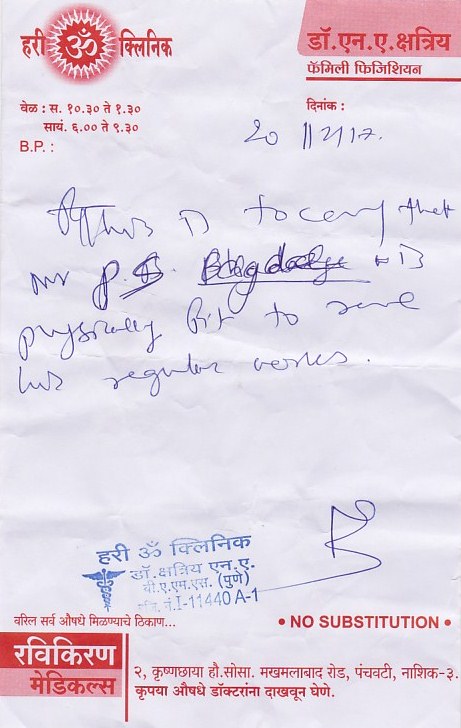 हरी ॐ क्लिनिक
डॉ.एन.ए.क्षत्रिय
फॅमिली फिजिशियन
वेळ : स. १०.३० ते १.३०
सायं. ६.०० ते ९.३०
दिनांक :
B.P. :
This is to that
Mr P.
physically fit to
his regular works.
हरी ॐ क्लिनिक
डॉ.क्षत्रिय एन.ए.
बी.ए.एम.एस. (पुणे)
नं.I-11440 A-1
वरिल सर्व औषधे मिळण्याचे ठिकाण...
• NO SUBSTITUTION •
रविकिरण
मेडिकल्स
२, कृष्णछाया हौ.सोसा. मखमलाबाद रोड, पंचवटी, नाशिक-३.
कृपया औषधे डॉक्टरांना दाखवून घेणे.